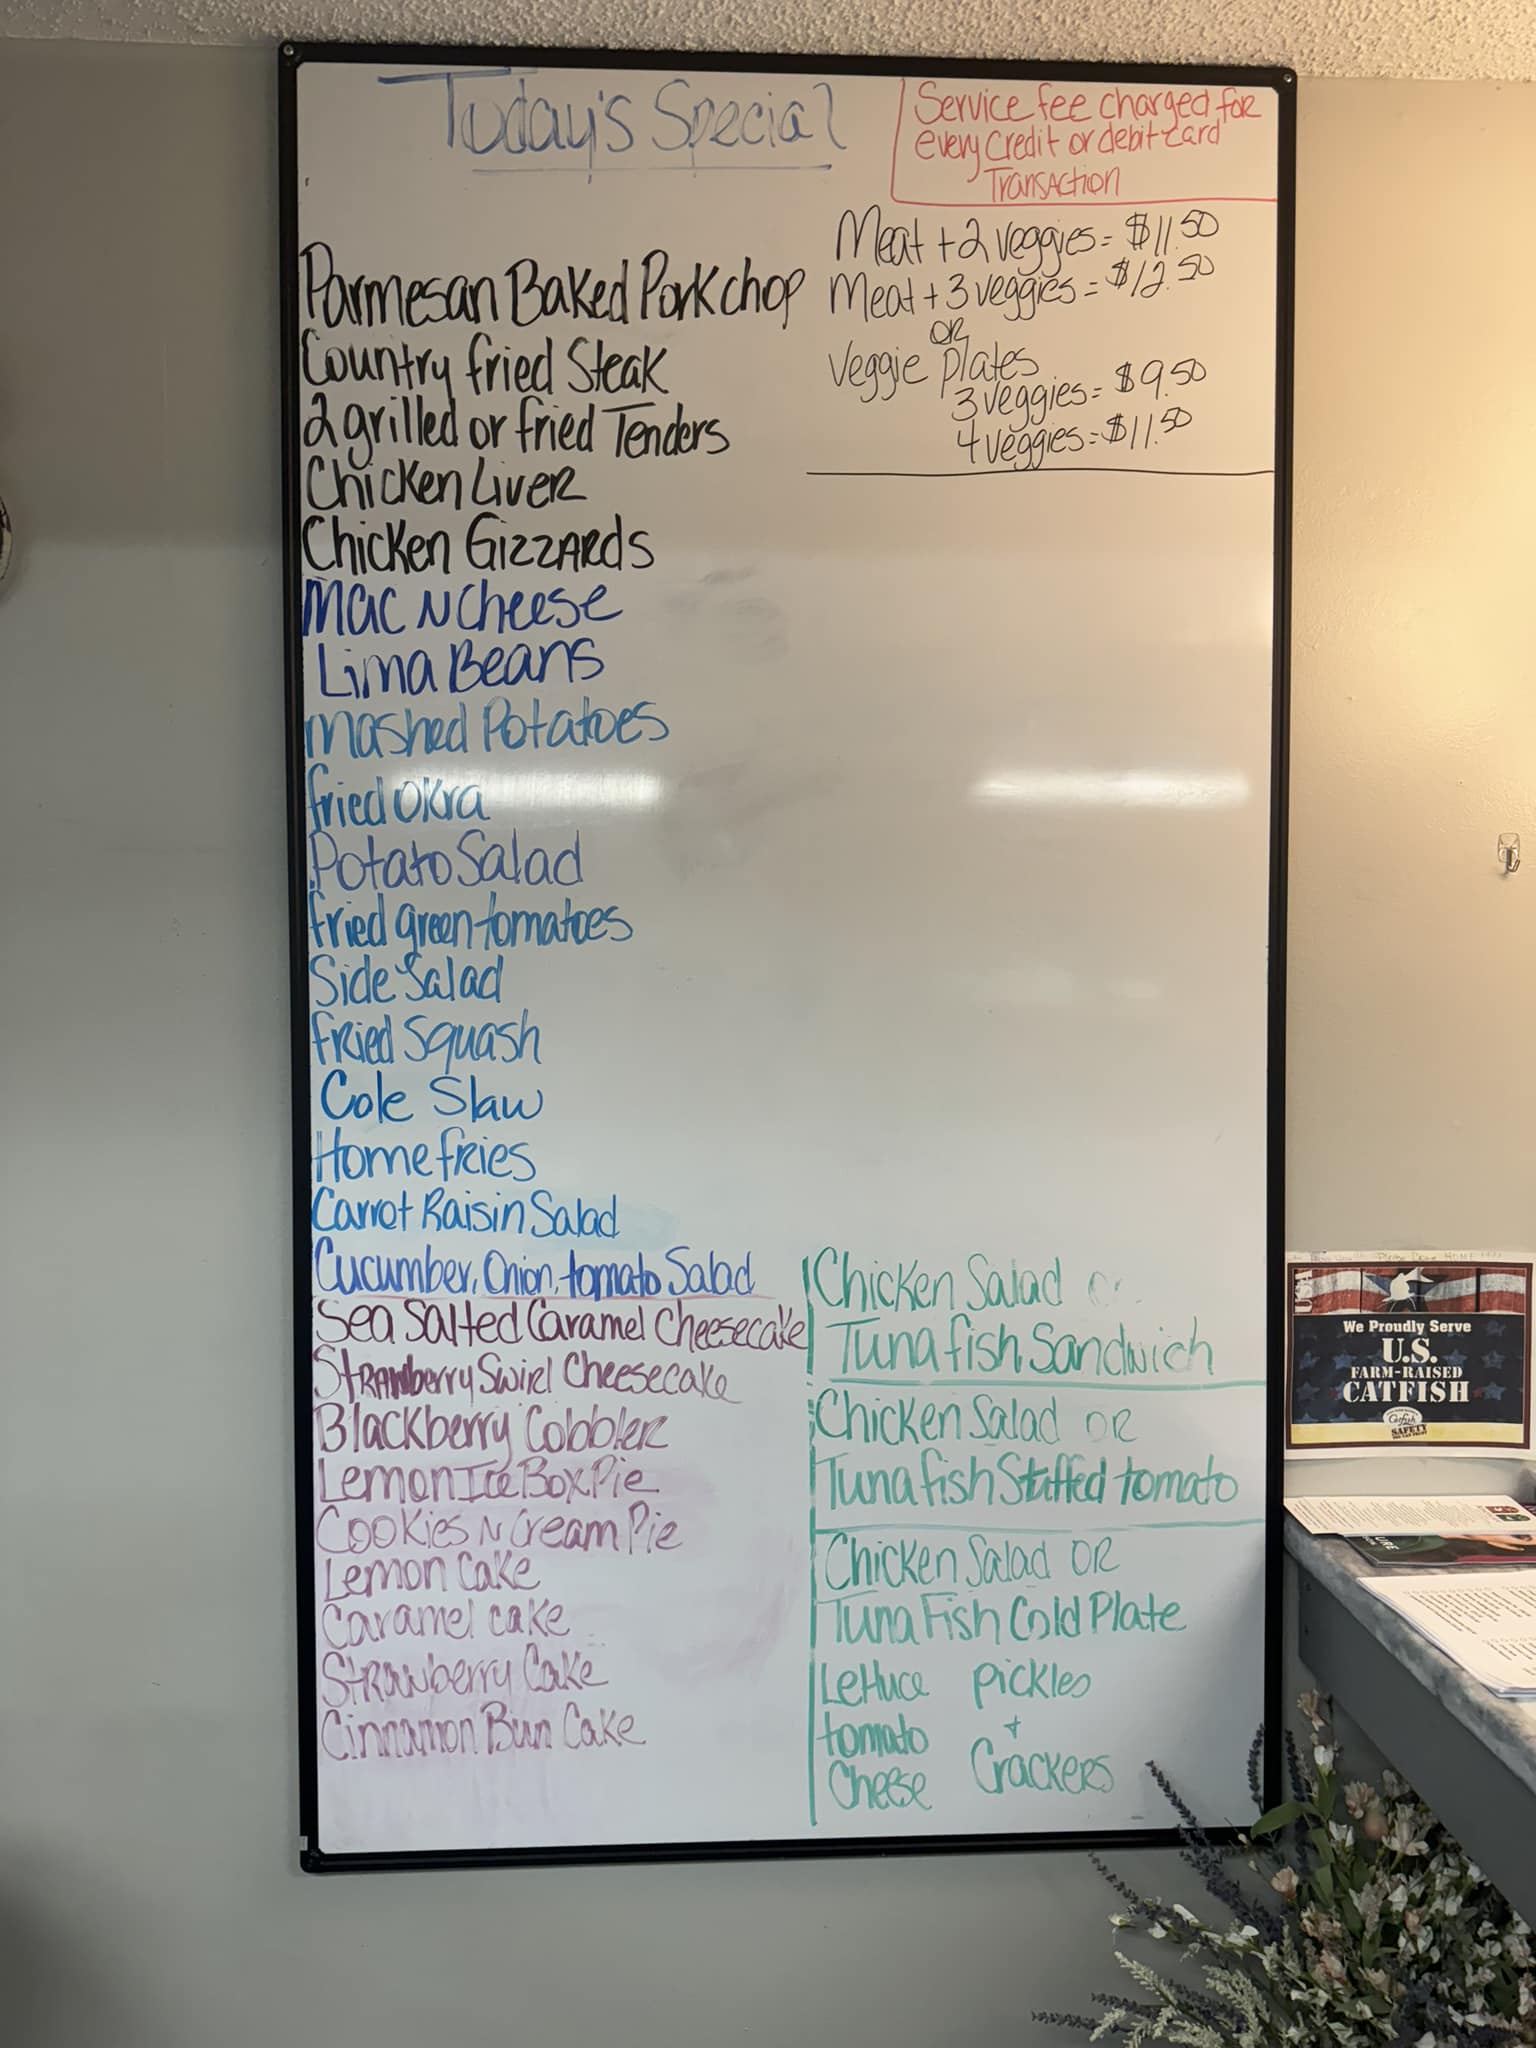 Today's Special
Service fee charged for
every credit or debit card
Transaction
Meat + 2 veggies = $11.50
Meat + 3 veggies = $12.50
OR
Veggie plates
3 veggies = $9.50
4 veggies = $11.50
Parmesan Baked Porkchop
Country fried Steak
2 grilled or fried Tenders
Chicken Liver
Chicken Gizzards
Mac N Cheese
Lima Beans
mashed Potatoes
fried Okra
Potato Salad
fried green tomatoes
Side Salad
fried Squash
Cole Slaw
Home fries
Carrot Raisin Salad
Cucumber, Onion, tomato Salad
Sea Salted Caramel Cheesecake
Strawberry Swirl Cheesecake
Blackberry Cobbler
Lemon Ice Box Pie
Cookies N Cream Pie
Lemon Cake
Caramel cake
Strawberry Cake
Cinnamon Bun Cake
Chicken Salad
Tuna fish Sandwich
Chicken Salad OR
Tuna fish Stuffed tomato
Chicken Salad OR
Tuna Fish Cold Plate
Lettuce pickles
tomato +
Cheese Crackers
USA
We Proudly Serve
U.S.
FARM-RAISED
CATFISH
Catfish
SAFETY